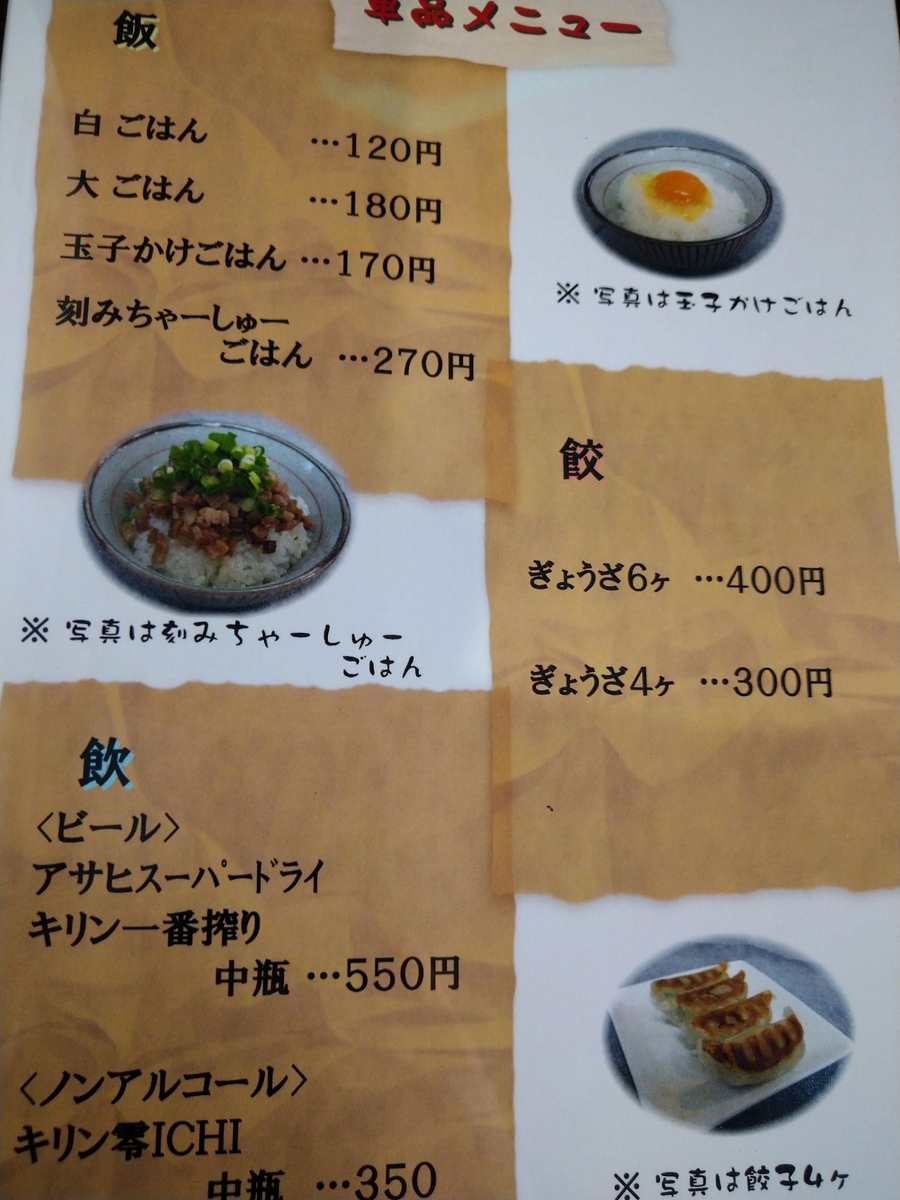 単品メニュー
飯
白 ごはん …120円
大 ごはん …180円
玉子かけごはん …170円
刻みちゃーしゅー
ごはん …270円
※ 写真は玉子かけごはん
※ 写真は刻みちゃーしゅー
ごはん
餃
ぎょうざ6ヶ …400円
ぎょうざ4ヶ …300円
飲
〈ビール〉
アサヒスーパードライ
キリン一番搾り
中瓶 …550円
〈ノンアルコール〉
キリン零ICHI
中瓶 …350
※ 写真は餃子4ヶ